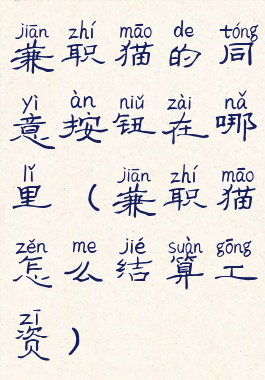 jiān zhí māo de tóng
兼职猫的同
yì àn niǔ zài nǎ
意按钮在哪
lǐ jiān zhí māo
里（兼职猫
zěn me jié suàn gōng
怎么结算工
zī
资）